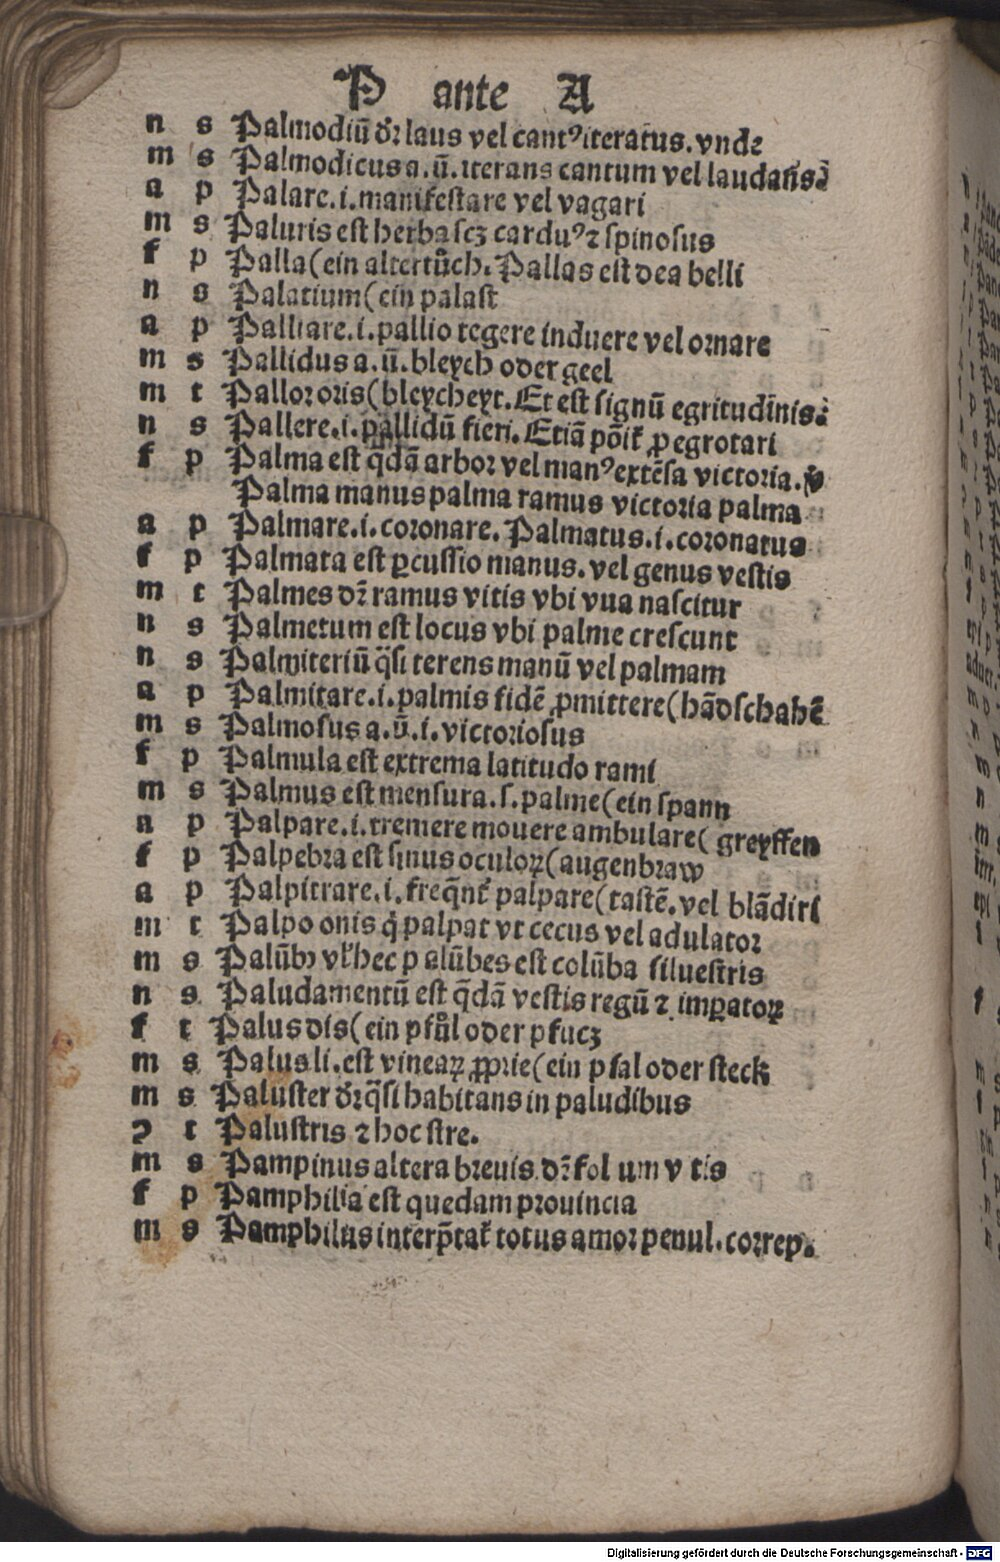 P ante A
n s Palmodiū dr̄ laus vel cantꝰ iteratus. vnde
m s Palmodicus a. ū. iterans cantum vel laudatīs
a p Palare. i. manifestare vel vagari
m s Paluris est herba scꝫ carduꝰ ⁊ spinosus
f p Palla (ein altertůch. Pallas est dea belli
n s Palatium (ein palast
a p Palliare. i. pallio tegere induere vel ornare
m s Pallidus a. ū. bleych oder geel
m t Pallor oris (bleycheyt. Et est signū egritudīnis.
n s Pallere. i. pallidū fieri. Etiā pōit̄ ꝓ egrotari
f p Palma est q̄dā arbor vel manꝰ extēsa victoria. v̄
Palma manus palma ramus victoria palma
a p Palmare. i. coronare. Palmatus. i. coronatus
f p Palmata est ꝑcussio manus. vel genus vestis
m t Palmes dr̄ ramus vitis vbi vua nascitur
n s Palmetum est locus vbi palme crescunt
n s Palmiteriū q̄si terens manū vel palmam
a p Palmitare. i. palmis fidē ꝓmittere (hādschabē
m s Palmosus a. ū. i. victoriosus
f p Palmula est extrema latitudo rami
m s Palmus est mensura. s. palme (ein spann
a p Palpare. i. tremere mouere ambulare (greyffen
f p Palpebra est sinus oculoꝝ (augenbraw
a p Palpitrare. i. freq̄nt̄ palpare (tastē. vel blādiri
m t Palpo onis q̇ palpat vt cecus vel adulator
m s Palūbꝰ vl̄ hec palūbes est colūba siluestris
n s Paludamentū est q̄dā vestis regū ⁊ imꝑatoꝝ
f t Palus dis (ein pfůl oder pfucz
m s Palus li. est vineaꝝ ꝓprie (ein pfal oder steck
m s Paluster dr̄ q̄si habitans in paludibus
ꝯ t Palustris ⁊ hoc stre.
m s Pampinus altera breuis dr̄ folium vitis
f p Pamphilia est quedam prouincia
m s Pamphilus interp̄tat̄ totus amor penul. correp.
Digitalisierung gefördert durch die Deutsche Forschungsgemeinschaft - DFG